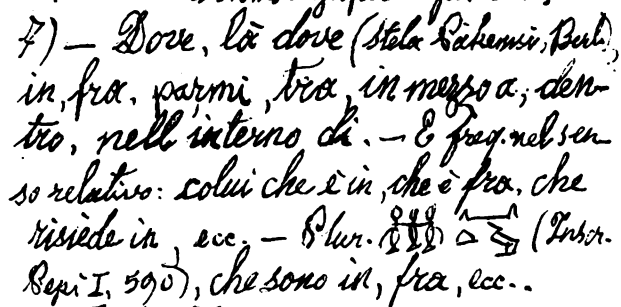 7) — Dove, là dove (stela Pâhemsi, Berl.),
in, fra, parmi, tra, in mezzo a, den-
tro, nell'interno di. — È freq. nel sen-
so relativo: colui che è in, che è fra, che
risiede in, ecc. — Plur. (Inscr.
Pepi I, 590), che sono in, fra, ecc..